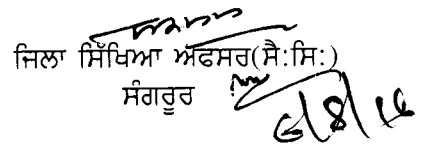 ਜਿਲਾ ਸਿੱਖਿਆ ਅਫਸਰ(ਸੈ:ਸਿ:)
ਸੰਗਰੂਰ
6/8/16